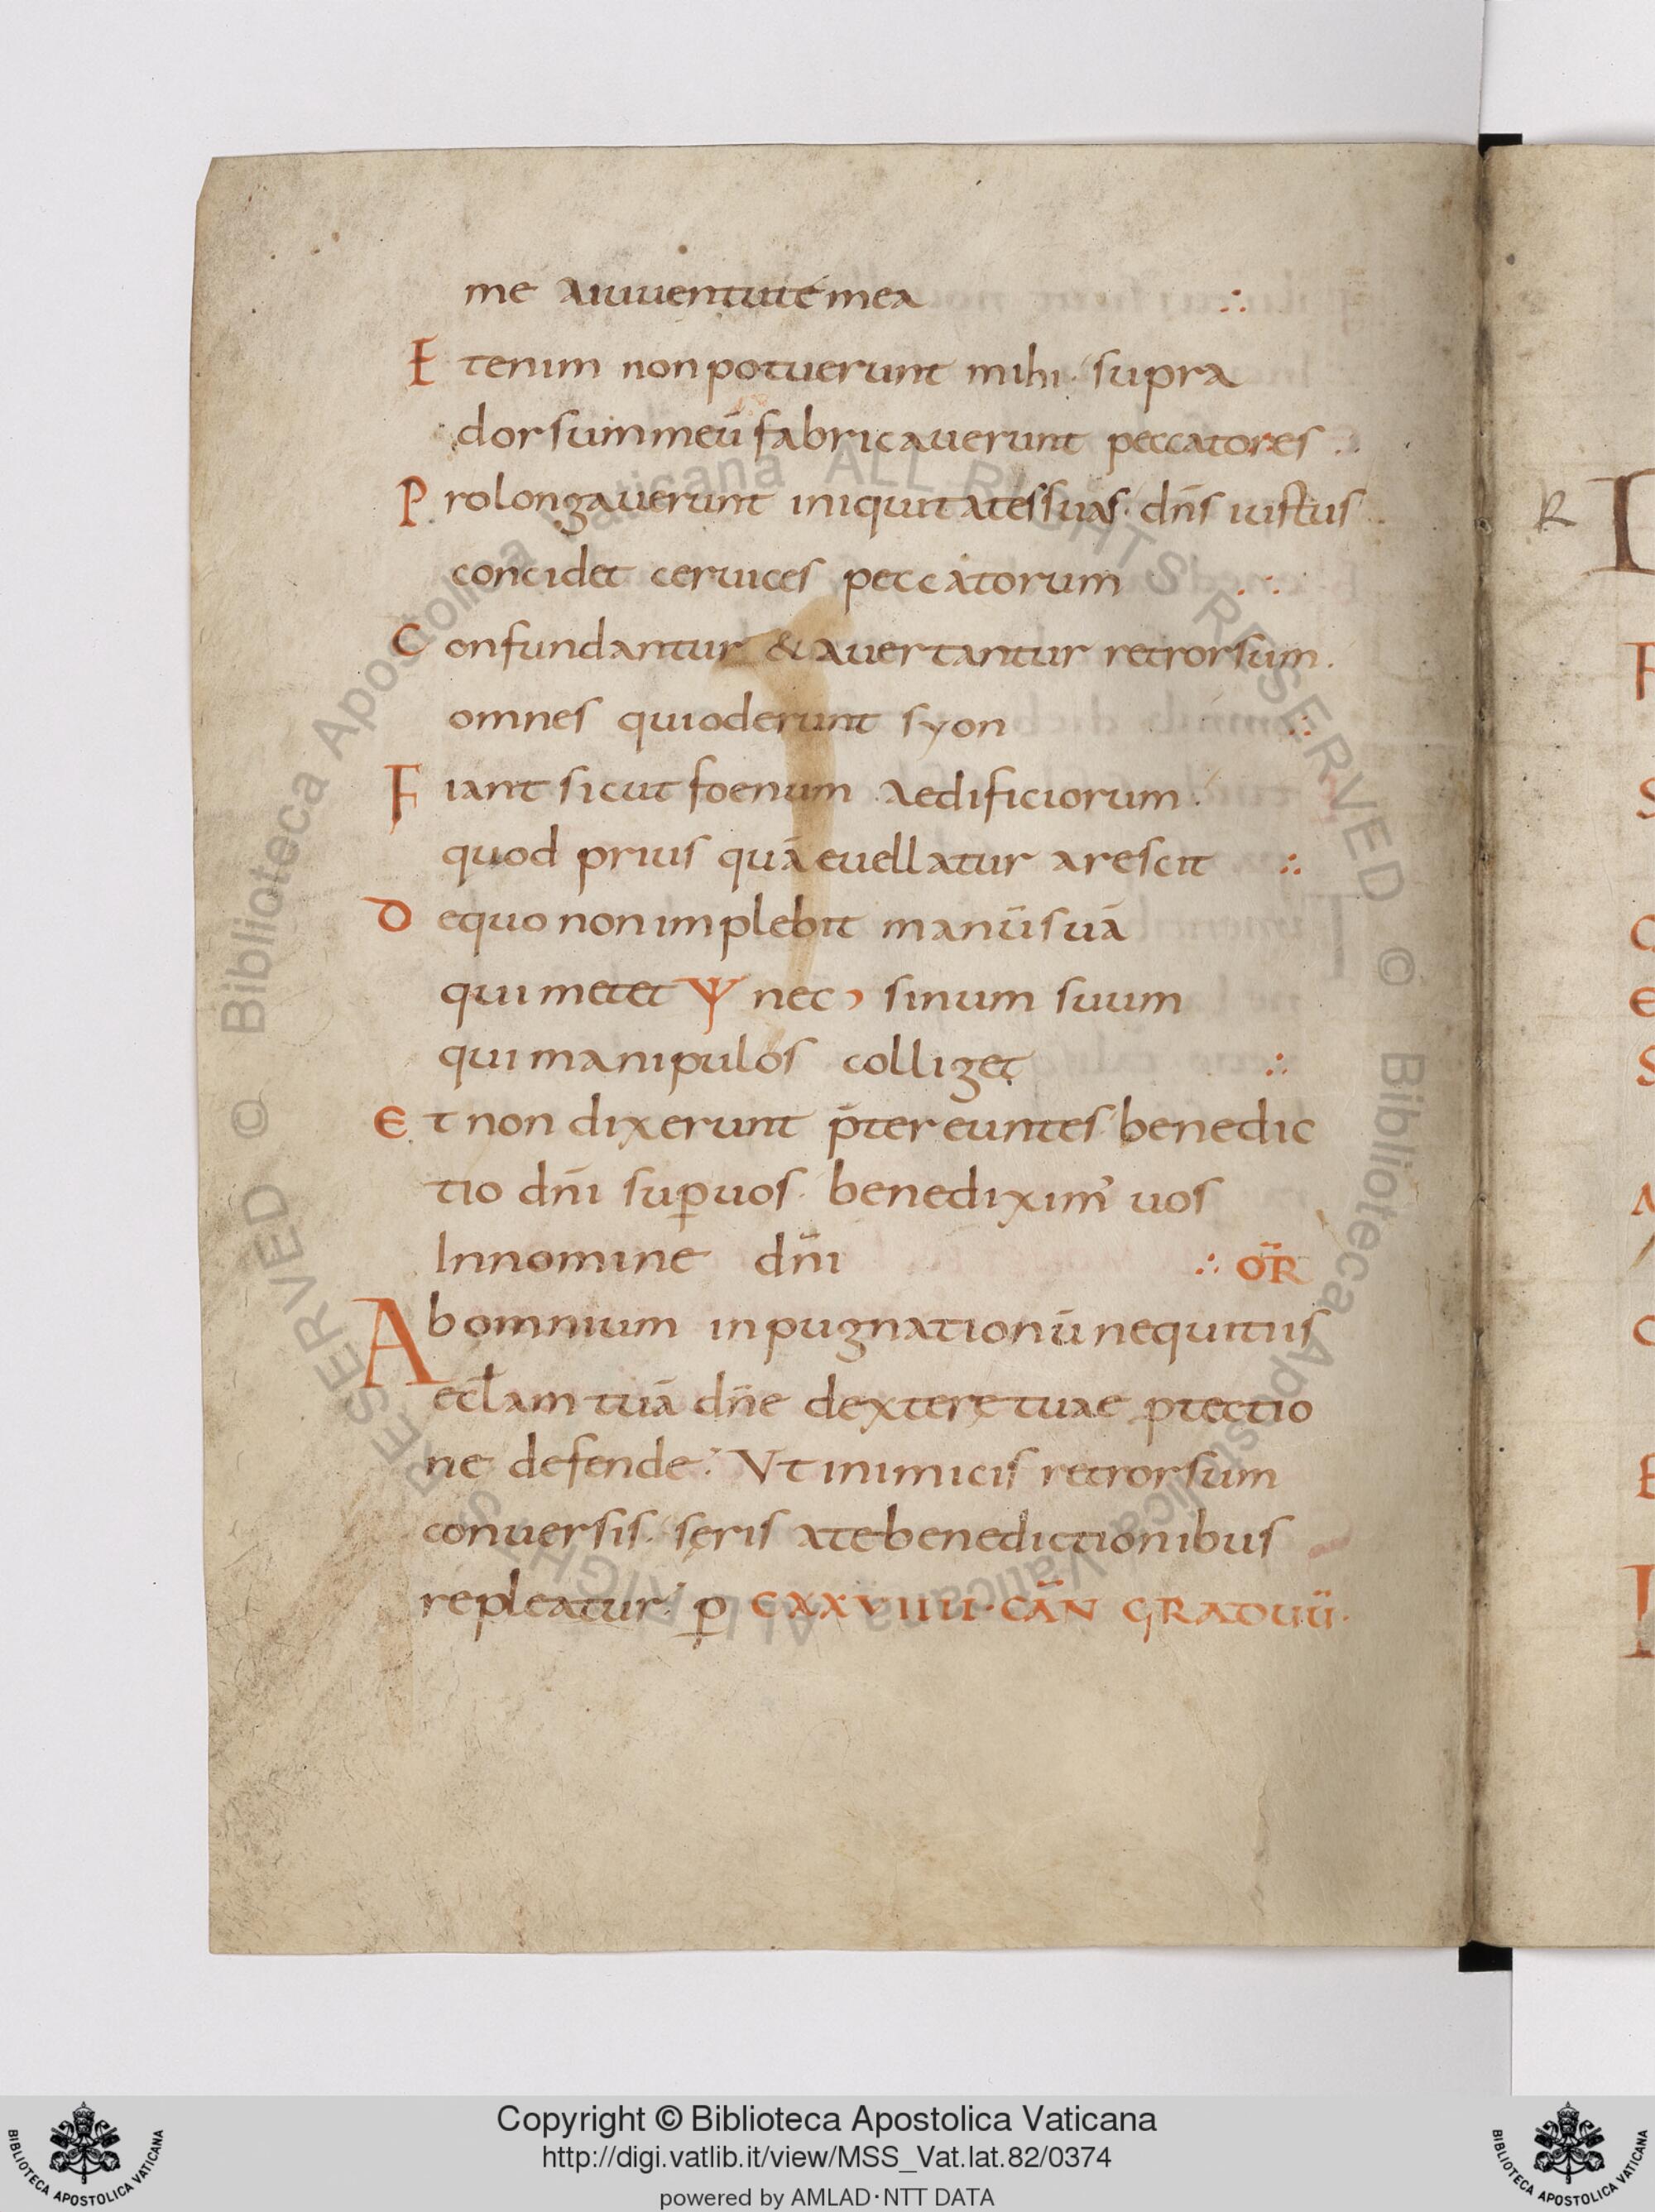 me aiuuentute mea ∴
E tenim non potuerunt mihi · supra
dorsum meū fabricauerunt peccatores ∴
P rolongauerunt iniquitates suas · dn̄s iustus
concidet ceruices peccatorum ∴
C onfundantur & auertantur retrorsum ·
omnes qui oderunt syon ∴
F iant sicut foenum aedificiorum ·
quod prius quā euellatur arescit ∴
D equo non implebit manū suā
qui metet Ψ nec, sinum suum
qui manipulos colliget ∴
E t non dixerunt p̄tereuntes benedic
tio dn̄i suꝑ uos · benediximꝰ uos
In nomine dn̄i ∴ OR̄
A b omnium inpugnationū nequitiis
eccƚam tuā dn̄e dexterę tuae ꝓtectio
ne defende · Vt inimicis retrorsum
conuersis · seris ate benedictionibus
repleatur · ꝑ CXXVIIII · CĀN GRADUŪ ·
R
Copyright © Biblioteca Apostolica Vaticana
http://digi.vatlib.it/view/MSS_Vat.lat.82/0374
powered by AMLAD·NTT DATA
BIBLIOTECA APOSTOLICA VATICANA
BIBLIOTECA APOSTOLICA VATICANA
© Biblioteca Apostolica Vaticana ALL RIGHTS RESERVED
© Biblioteca Apostolica Vaticana ALL RIGHTS RESERVED